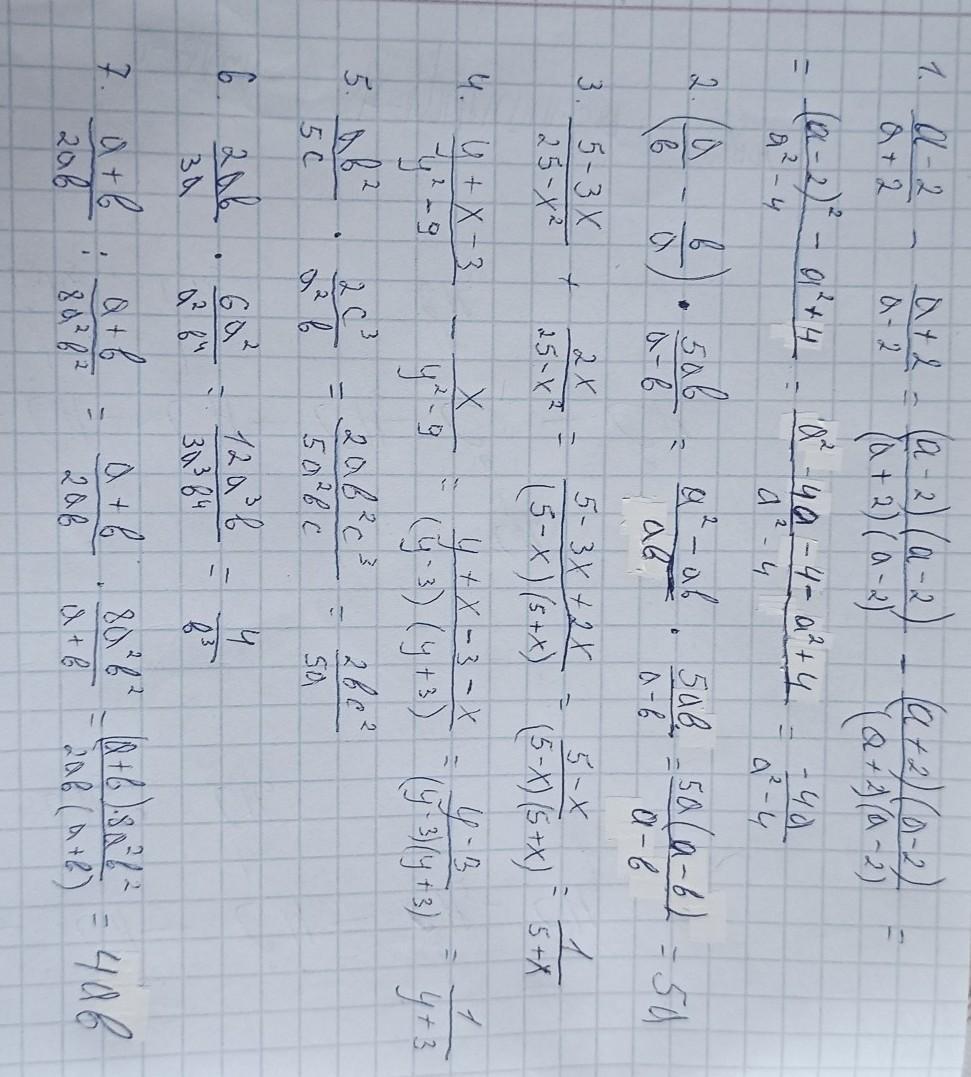 1. a-2/a+2 - a+2/a-2 = (a-2)(a-2)/(a+2)(a-2) - (a+2)(a-2)/(a+2)(a-2) =
= (a-2)² - a²+4/a²-4 = a²-4a-4-a²+4/a²-4 = -4a/a²-4
2. (a/b - b/a) · 5ab/a-b = a²-ab/ab · 5ab/a-b = 5a(a-b)/a-b = 5a
3. 5-3x/25-x² + 2x/25-x² = 5-3x+2x/(5-x)(5+x) = 5-x/(5-x)(5+x) = 1/5+x
4. y+x-3/y²-9 - x/y²-9 = y+x-3-x/(y-3)(y+3) = y-3/(y-3)(y+3) = 1/y+3
5. ab²/5c · 2c³/a²b = 2ab²c³/5a²bc = 2bc²/5a
6. 2ab/3a · 6a²/a²b⁴ = 12a³b/3a³b⁴ = 4/b³
7. a+b/2ab : a+b/8a²b² = a+b/2ab · 8a²b²/a+b = (a+b)·8a²b²/2ab(a+b) = 4ab